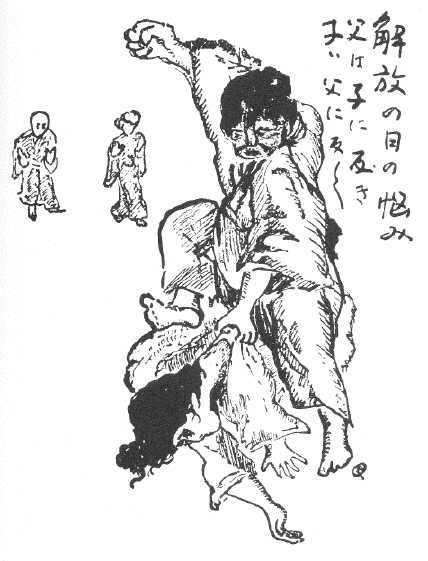 解放の日の悩み
父は子に反き
子ハ父に反く